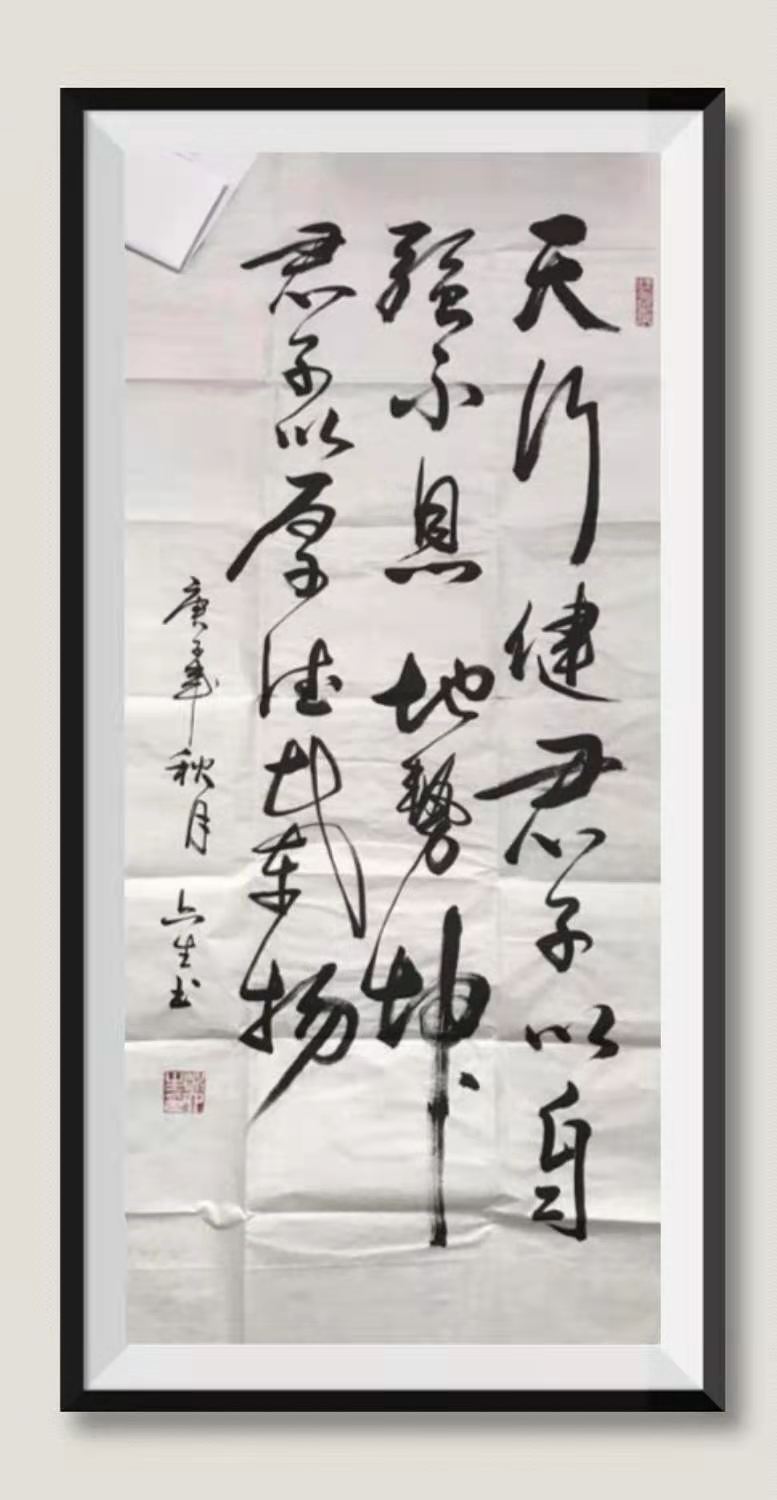 天行健君子以自
強不息地勢坤
君子以厚德载物
庚子年秋月生书